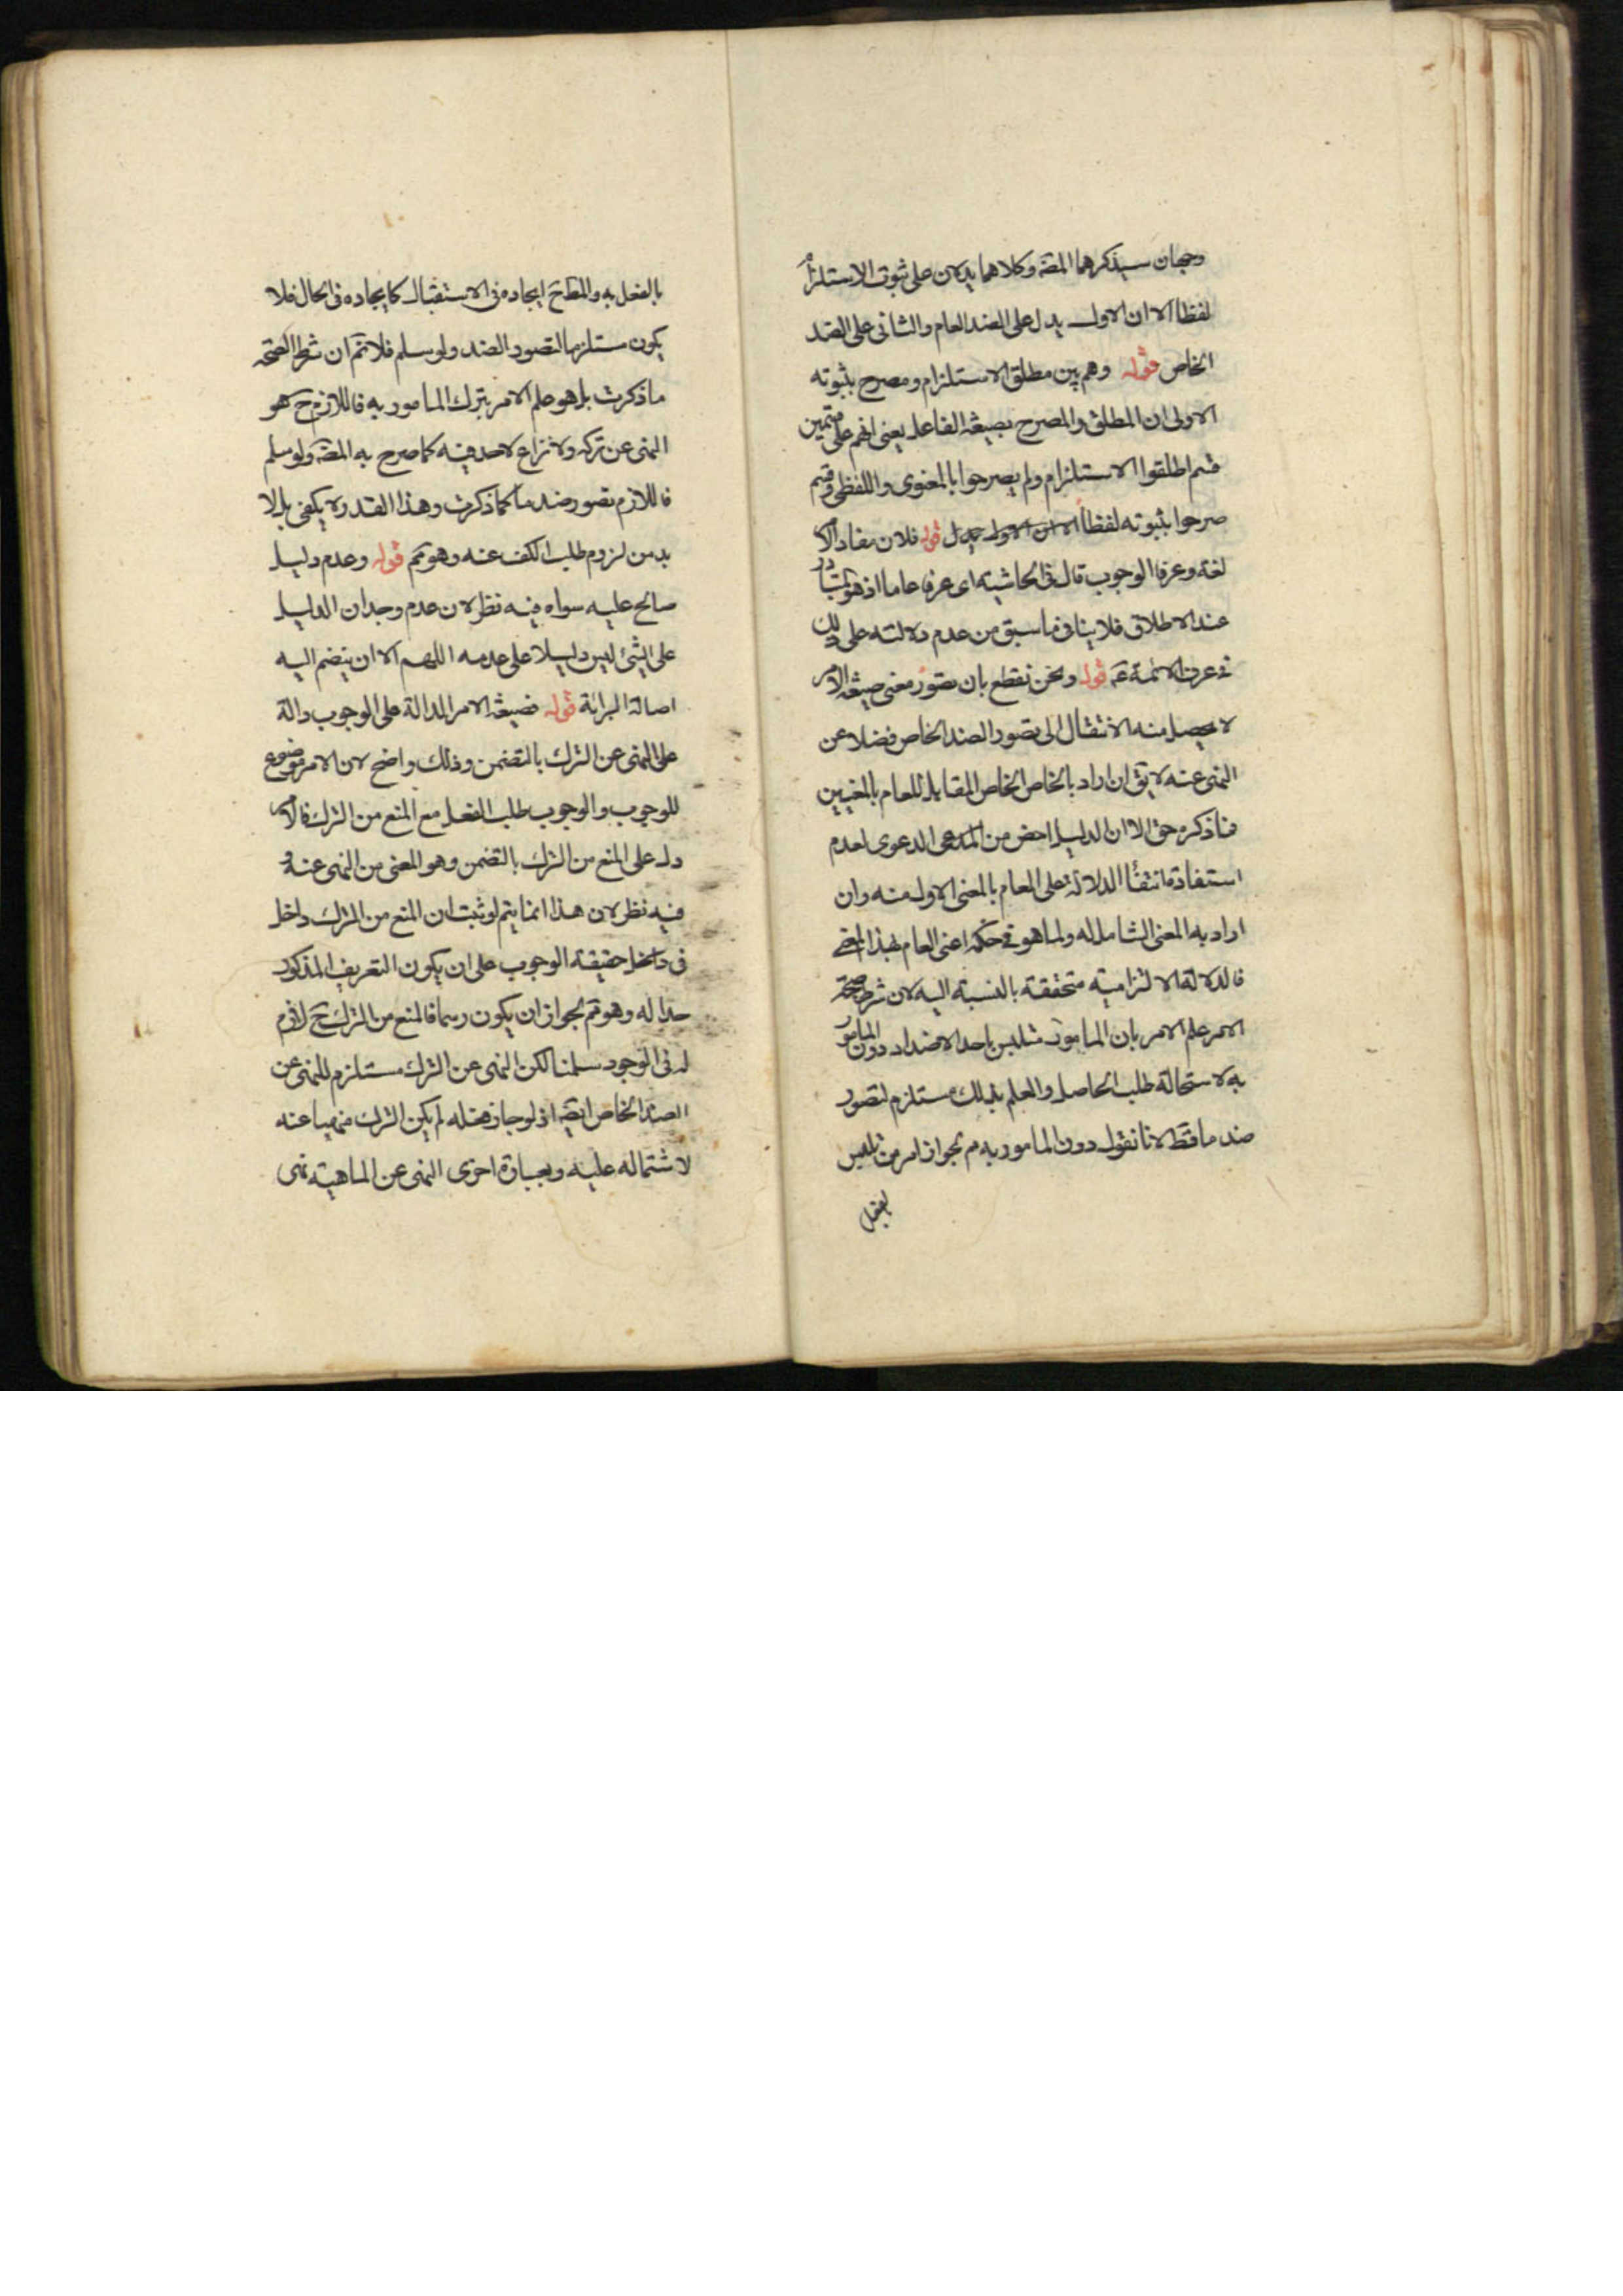 وجهان سيذكرهما المصۤ وكلاهما يدلان على ثبوت الاستلزام
لفظا الا ان الاول يدل على الضد العام والثانى على الضد
الخاص قوله وهم بين مطلق الاستلزام ومصرح بثبوته
الاولى ان المطلق والمصرح بصيغة الفاعل يعنى انهم على قسمين
قسم اطلقوا الاستلزام ولم يصرحوا بالمعنوى واللفظى وقسم
صرحوا بثبوته لفظا الا ان الاول يدل قوله فلان مفاد الامر
لغة وعرفا الوجوب قال فى الحاشية اى عرفا عاما اذ هو المتبادر
عند الاطلاق فلا ينافى ما سبق من عدم دلالته على ذلك
فى عرف الائمة عۤم قوله ونحن نقطع بان تصور معنى صيغة الامر
لا يحصل منه الانتقال الى تصور الضد الخاص فضلا عن
النهى عنه لا يق ان اراد بالخاص الخاص المقابل للعام بالمعنيين
فما ذكره حق الا ان الدليل اخص من المدعى الدعوى لعدم
استفادة انتفاء الدلالة على العام بالمعنى الاول منه وان
اراد به المعنى الشامل له ولما هو فى حكمه اعنى العام بهذا المعنى
فالدلالة الالتزامية متحققة بالنسبة اليه لان شرط صحة
الامر علم الامر بان المامور متلبس باحد الاضداد دون المامور
به لاستحالة طلب الحاصل والعلم بذلك مستلزم لتصور
ضد ما قطۤ لانا نقول دون المامور به مۤ لجواز امر من تلبس
بالفعل
بالفعل به والمطۤ ايجاده فى الاستقبال كايجاده فى الحال فلا
يكون مستلزما لتصور الضد ولو سلم فلا نمۤ ان شرط الصحة
ما ذكرت بل هو علم الامر بترك المامور به فاللازم حۤ هو
النهى عن تركه ولا نزاع لاحد فيه كما صرح به المصۤ ولو سلم
فاللازم تصور ضد ما كما ذكرت وهذا القدر لا يكفى بل لا
بد من لزوم طلب الكف عنه وهو ممۤ قوله وعدم دليل
صالح عليه سواه فيه نظر لان عدم وجدان الدليل
على الشئ ليس دليلا على عدمه اللهم الا ان ينضم اليه
اصالة البرائة قوله فصيغة الامر الدالة على الوجوب دالة
على النهى عن الترك بالتضمن وذلك واضح لان الامر موضوع
للوجوب والوجوب طلب الفعل مع المنع من الترك فالامر
دل على المنع من الترك بالتضمن وهو المعنى من النهى عنه و
فيه نظر لان هذا انما يتم لو ثبت ان المنع من الترك داخل
فى داخل حقيقة الوجوب على ان يكون التعريف المذكور
حدا له وهو مۤم لجواز ان يكون رسما فالمنع من الترك حۤ لازم
له فى الوجود سلمنا لكن النهى عن الترك مستلزم للنهى عن
الضد الخاص ايضۤ اذ لو جاز فعله لم يكن الترك منهيا عنه
لاشتماله عليه وبعبارة اخرى النهى عن الماهية نهى